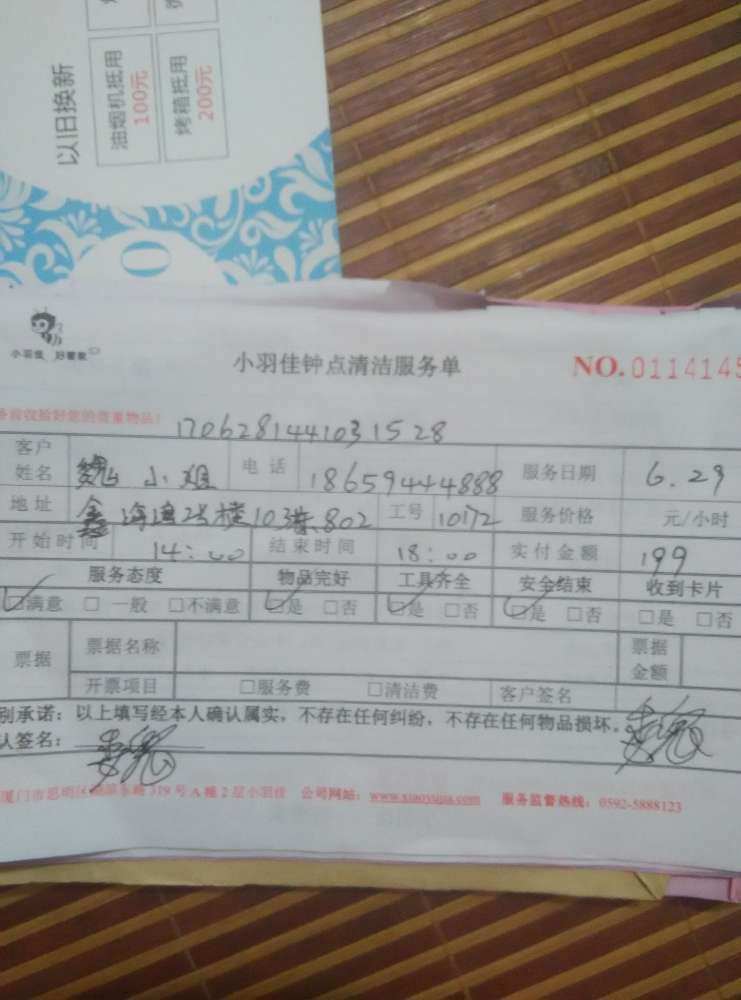 以旧换新
油烟机抵用
100元
烤箱抵用
200元
小羽佳 好管家
小羽佳钟点清洁服务单 NO.0114145
前收拾好您的贵重物品!
170628144103 1528
客户姓名 魏小姐 电话 18659444888 服务日期 6.29
地址 鑫海湾2号楼103梯802 工号 10172 服务价格 元/小时
开始时间 14:00 结束时间 18:00 实付金额 199
服务态度 物品完好 工具齐全 安全结束 收到卡片
☑满意 □一般 □不满意 ☑是 □否 ☑是 □否 ☑是 □否 □是 □否
票据 票据名称 票据金额
开票项目 □服务费 □清洁费 客户签名
别承诺:以上填写经本人确认属实,不存在任何纠纷,不存在任何物品损坏。
认签名:
厦门市思明区 319号A幢2层小羽佳 公司网站:www.xiaoyujia.com 服务监督热线:0592-5888123